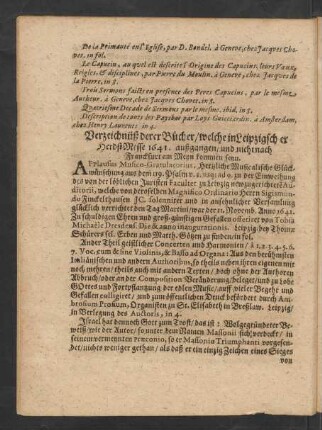 De la Primauté en l'Eglise, par D. Bandel. à Geneve, chez Jacques Cho-
vet. in fol.
Le Capucin, auquel est descrite l'Origine des Capucins, leurs Vœux,
Reigles, & disciplines, par Pierre du Moulin. à Geneve, chez Jacques de
la Pierre, in 8.
Trois Sermons faicts en presence des Peres Capucins, par le mesme
Autheur, à Geneve, chez Jacques Chovet. in 8.
Quatriesme Decade de Sermons par le mesme, ibid, in 8.
Description de touts les Pays bas par Loys Guicciardin. à Amsterdam,
chez Henry Laurents in 4.
Verzeichnüß derer Bücher/ welche in Leipzigischer
Herbst Messe 1641. außgangen/ und nicht nach
Franckfurt am Meyn kommen seyn.
APplausus Musico-Gratulatorius, Hertzliche Musicalische Glück
wünschung aus dem 119. Psalm v. 1. usq; ad 9. zu der Einweihung
des von der löblichen Juristen Facultet zu Leipzig new zugerichteten Au-
ditorii, welche von desselben Magnifico Ordinario Herrn Sigismun-
do Finckelthausen JC. solenniter und in ansehnlicher Versamlung
glücklich verrichtet den Tag Martini/ war der 11. Novemb. Anno 1641.
Zu schuldigen Ehren und groß-günstigen Gefallen offeriret von Tobia
Michaële Dresdensi Die & anno inaugurationis. Leipzig bey Thoma
Schürers sel. Erben und Matth. Götzen zu finden in fol.
Ander Theil geistlicher Concerten und Harmonien/ à 1. 2. 3. 4. 5. 6.
7. Voc. cum & sine Violinis, & Basso ad Organa: Aus den berühmsten
Italiänischen und andern Authoribus, so theils neben ihren eigenen mit
noch mehren/ theils auch mit andern Texten/ doch ohne der Authoren
Abbruch/ oder an der Composition Veränderung/ beleget/ und zu Lobe
GOttes und Fortpflantzung der edlen Music/ auff vieler Begehr und
Gefallen colligiret/ und zum öffentlichen Druck befördert durch Am-
brosium Profium, Organisten zu St. Elisabeth in Breßlaw. Leipzig/
in Verlegung des Auctoris, in 4.
Israel hat dennoch Gott zum Trost/ das ist: Wolgegründeter Be-
weiß/ wie der Autor/ so unter dem Namen Massonii sich verdeckt/ in
seinem vermeynten Trewoio, so er Massonio Triumphanti vorgesen-
det/ nichts weniger gethan/ als daß er ein eintzig Zeichen eines Sieges
von